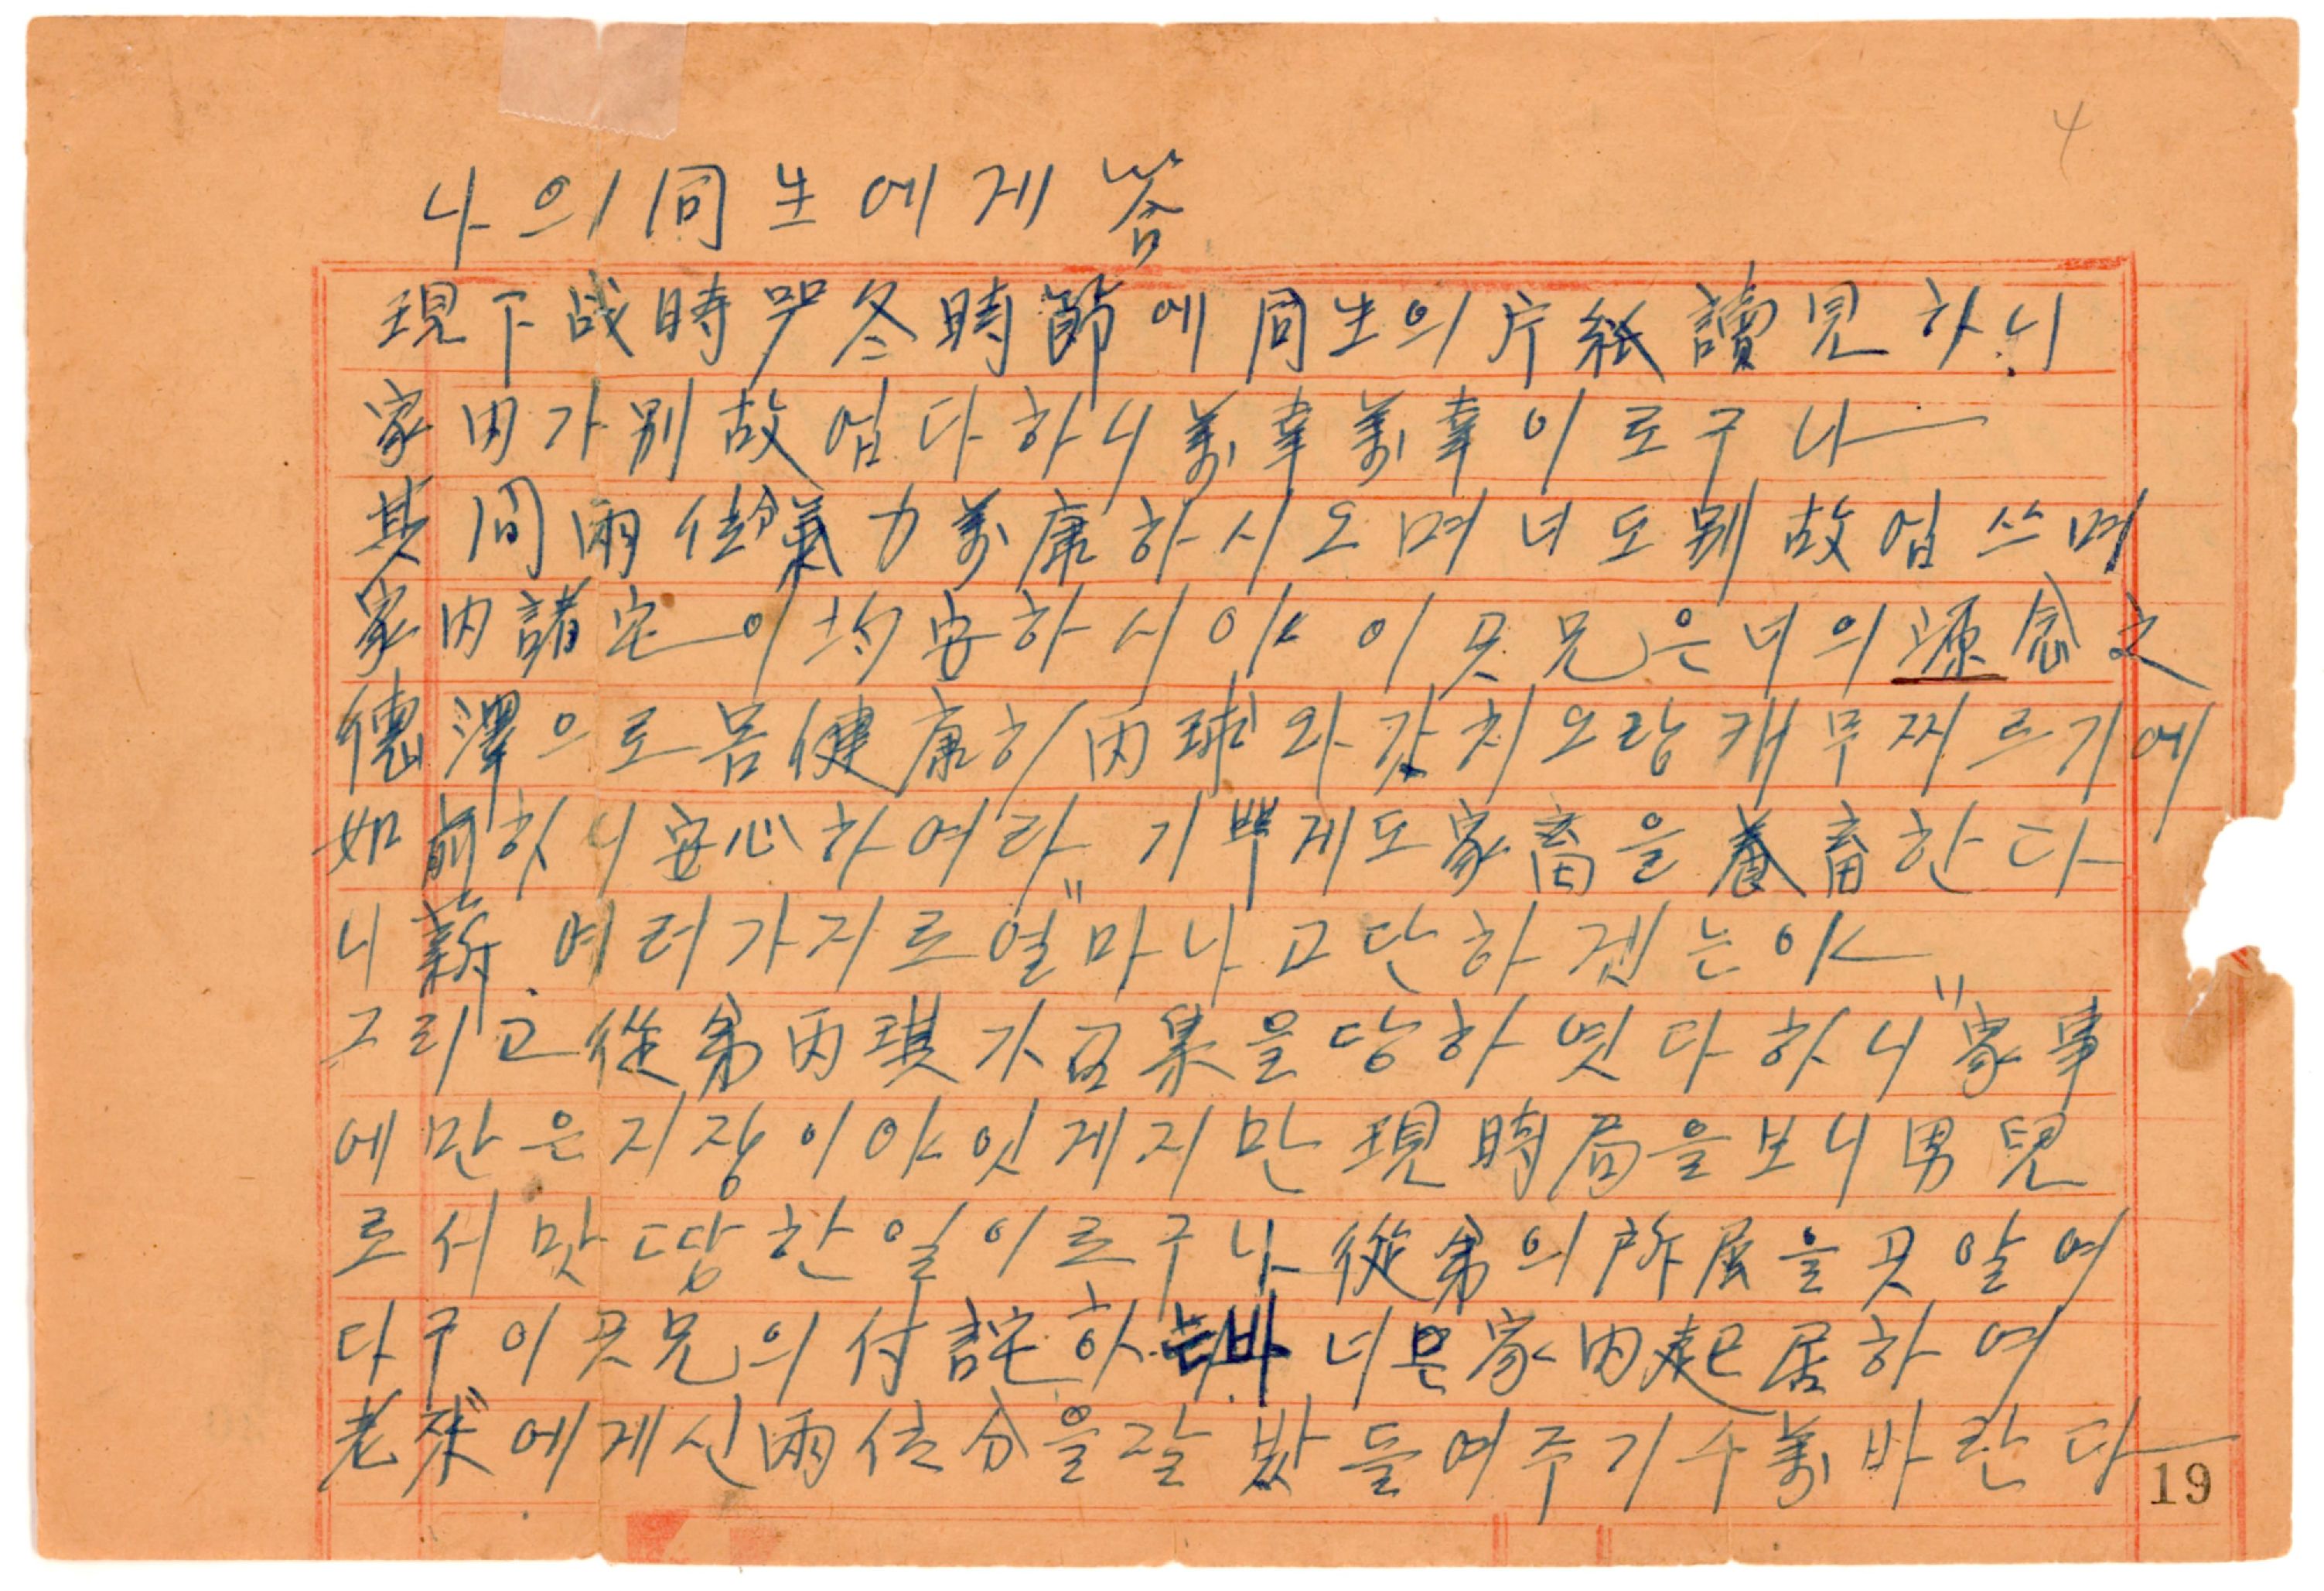 4
나의同生에게答
現下战時嚴冬時節에同生의片紙讀見하니
家内가別故업다하니萬幸萬幸이로구나
其间兩位分氣力萬康하시오며너도別故업쓰며
家内諸宅이均安하시야 이곳兄은너의源念之
德澤으로몸健康히丙球와갗치오랑캐무찌르기에
如前하니安心하여라 기쁘게도家畜을養畜한다
니薪 여러가지로얼마나고단하겐는야
그리고從弟丙琪가召集을당하엿다하니"家事
에만은지장이야잇게지만現時局을보니男児
로서맛땅한일이로구나從弟의所属을곳알여
다구이곳兄의付託하는바너는家内起居하여
老來에게신兩位分을잘밧들여주기수萬바란다
19